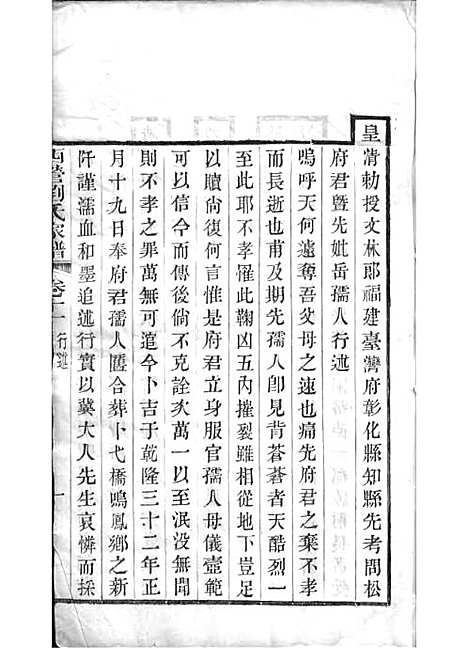 皇淸勅授文林郎福建臺灣府彰化縣知縣先考問松
府君曁先妣岳孺人行述
嗚呼天何遽奪吾父母之速也痛先府君之棄不孝
而長逝也甫及期先孺人卽見背蒼蒼者天酷烈一
至此耶不孝罹此鞠凶五內摧裂雖相從地下豈足
以贖尙何言惟是府君立身服官孺人母儀壼範
可以信今而傳後倘不克詮次萬一以至泯没無聞
則不孝之罪萬無可逭今卜吉于乾隆三十二年正
月十九日奉府君孺人匶合葬卜弋橋鳴鳳鄉之新
阡謹濡血和墨追述行實以冀大人先生哀憐而採
西營劉氏家譜 卷十一 行述 一